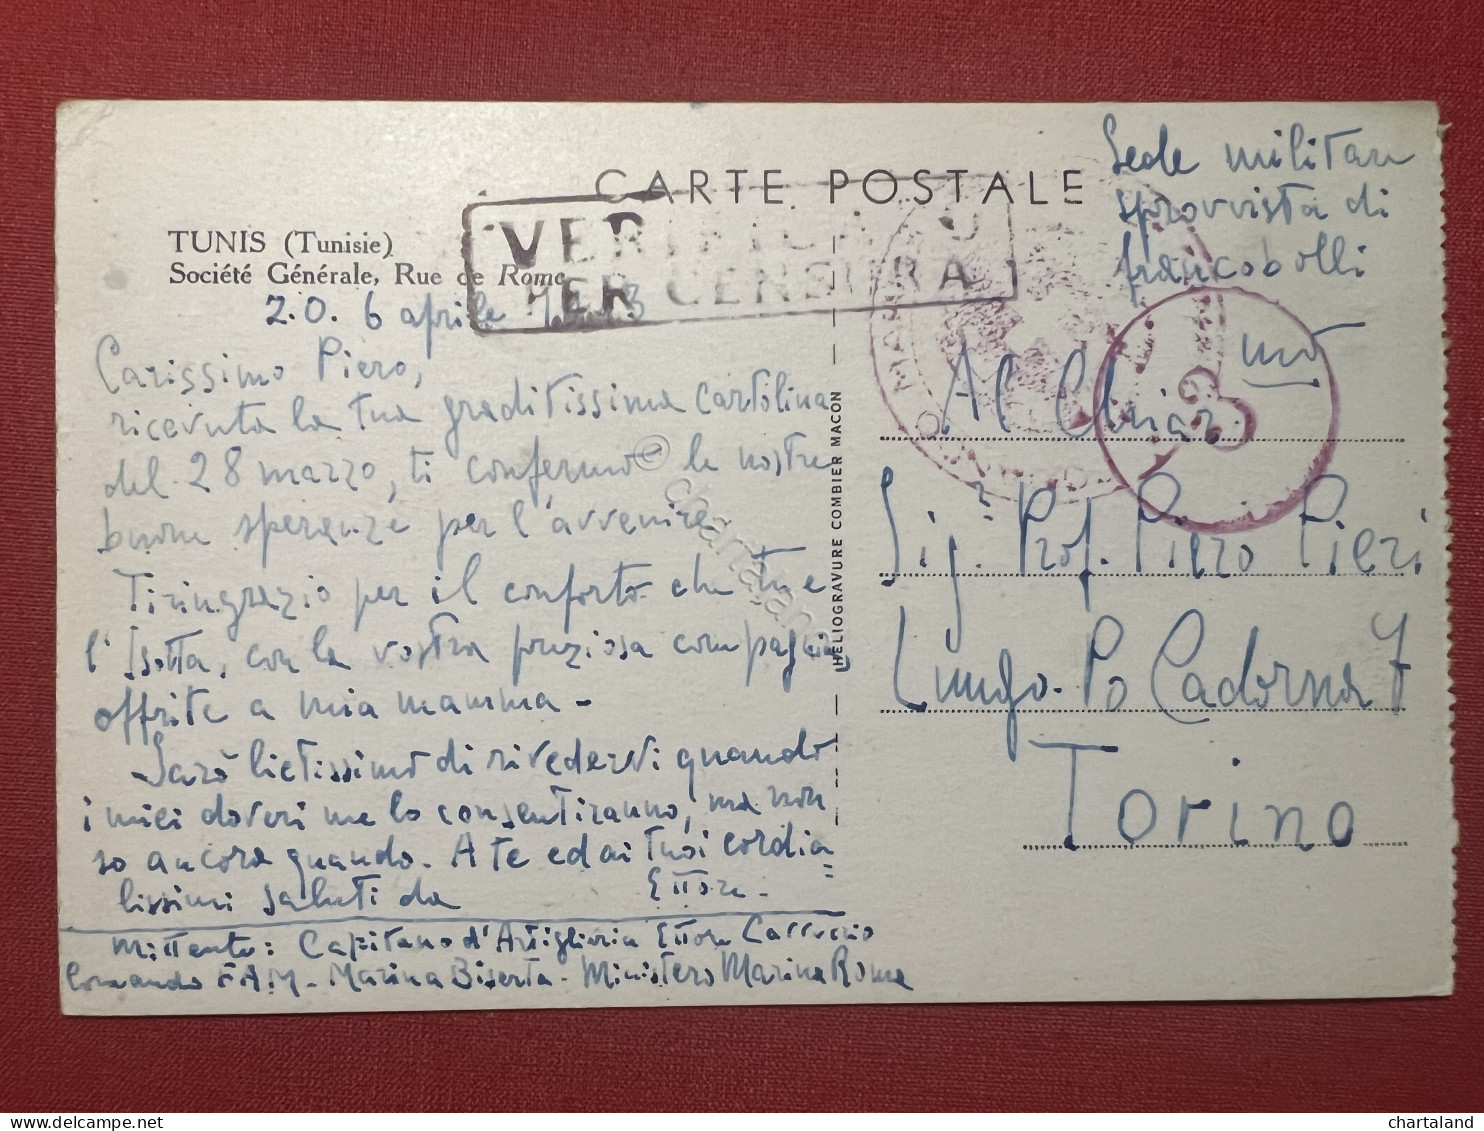 CARTE POSTALE
TUNIS (Tunisie)
Société Générale, Rue de Rome
VERIFICATO
PER CENSURA
Sede militare
sprovvista di
francobolli
Z.O. 6 aprile
Carissimo Piero,
ricevuta la tua graditissima cartolina
del 28 marzo, ti confermo le nostre
buone speranze per l'avvenire.
Ti ringrazio per il conforto che tu e
l'Isotta, con la vostra preziosa compagnia
offrite a mia mamma -
Sarò lietissimo di rivedervi quando
i miei doveri me lo consentiranno, ma non
so ancora quando. A te ed ai tuoi cordia=
lissimi saluti da Ettore -
Mittente: Capitano d'Artiglieria Ettore
Comando F.A.M. - Marina Biserta - Ministero Marina Roma
HELIOGRAVURE COMBIER MACON
Al Chiar mo
Sig.r Prof. Piero Pieri
Lungo Po Cadorna 7
Torino
© chartaland
delcampe.net
chartaland